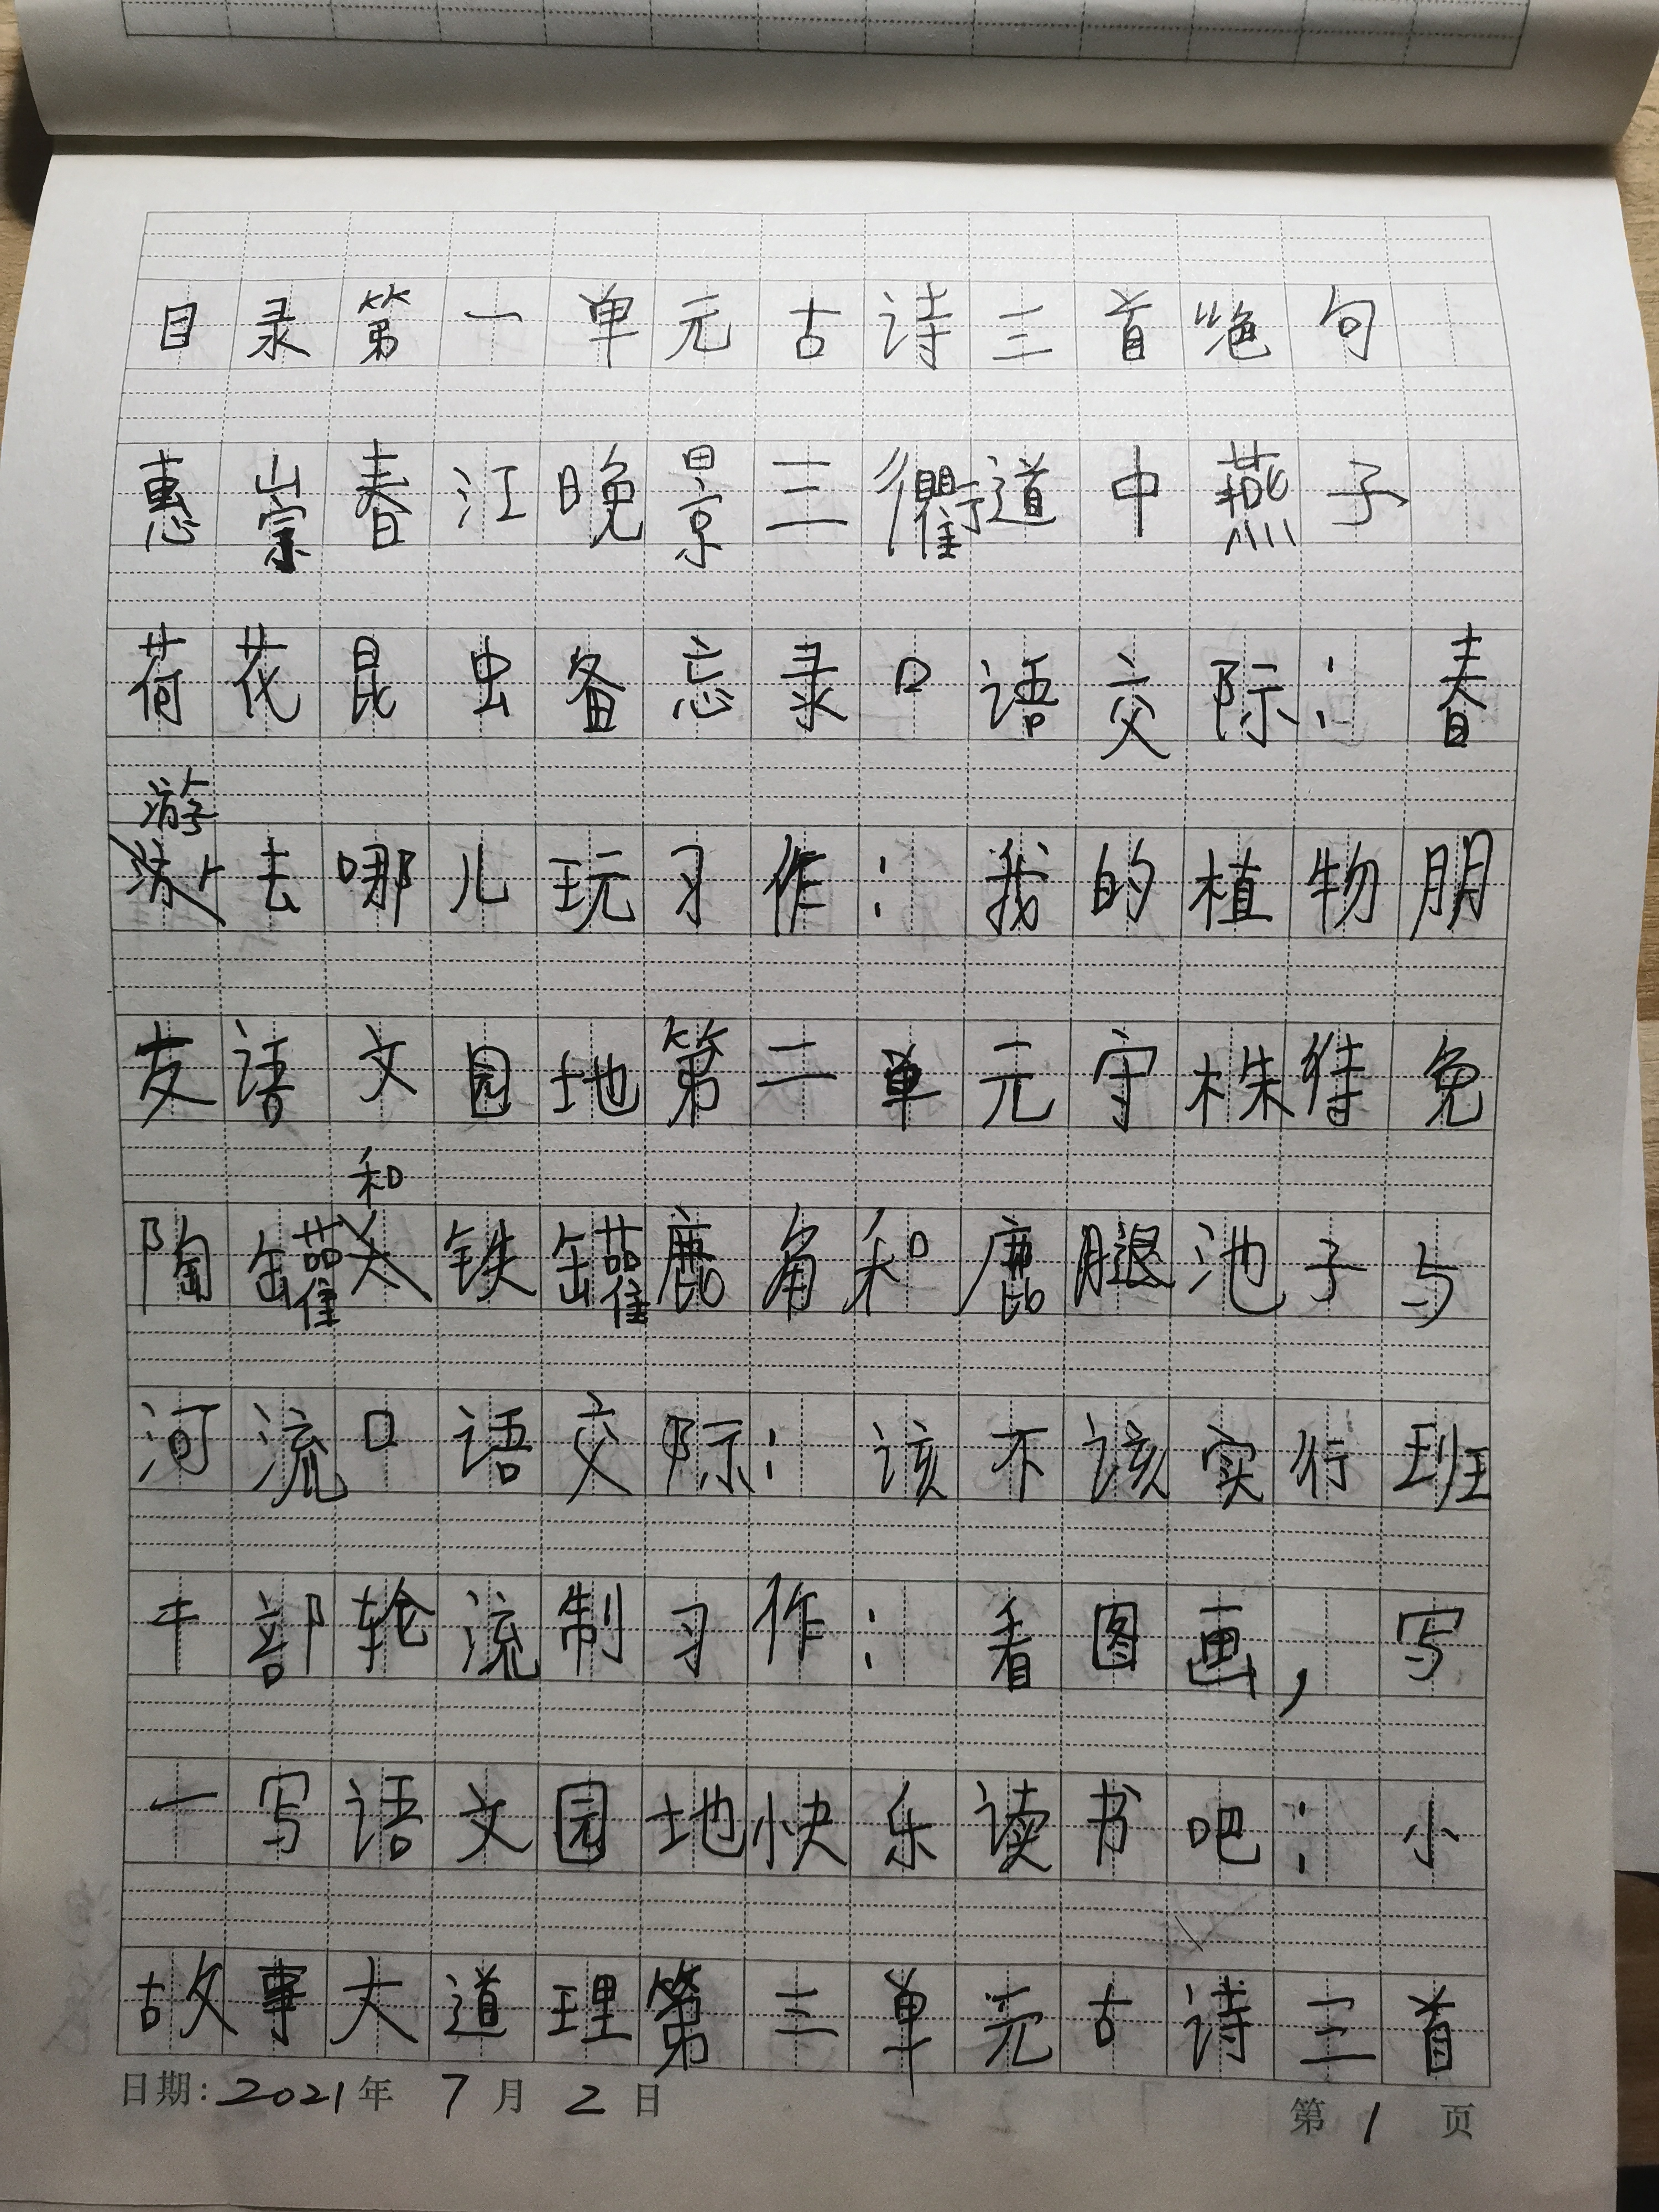 目录第一单元古诗三首绝句
惠崇春江晚景三衢道中燕子
荷花昆虫备忘录口语交际：春
游去哪儿玩习作：我的植物朋
友语文园地第二单元守株待兔
陶罐和铁罐鹿角和鹿腿池子与
河流口语交际：该不该实行班
干部轮流制习作：看图画，写
一写语文园地快乐读书吧：小
故事大道理第三单元古诗三首
日期：2021年 7月 2日 第 1 页